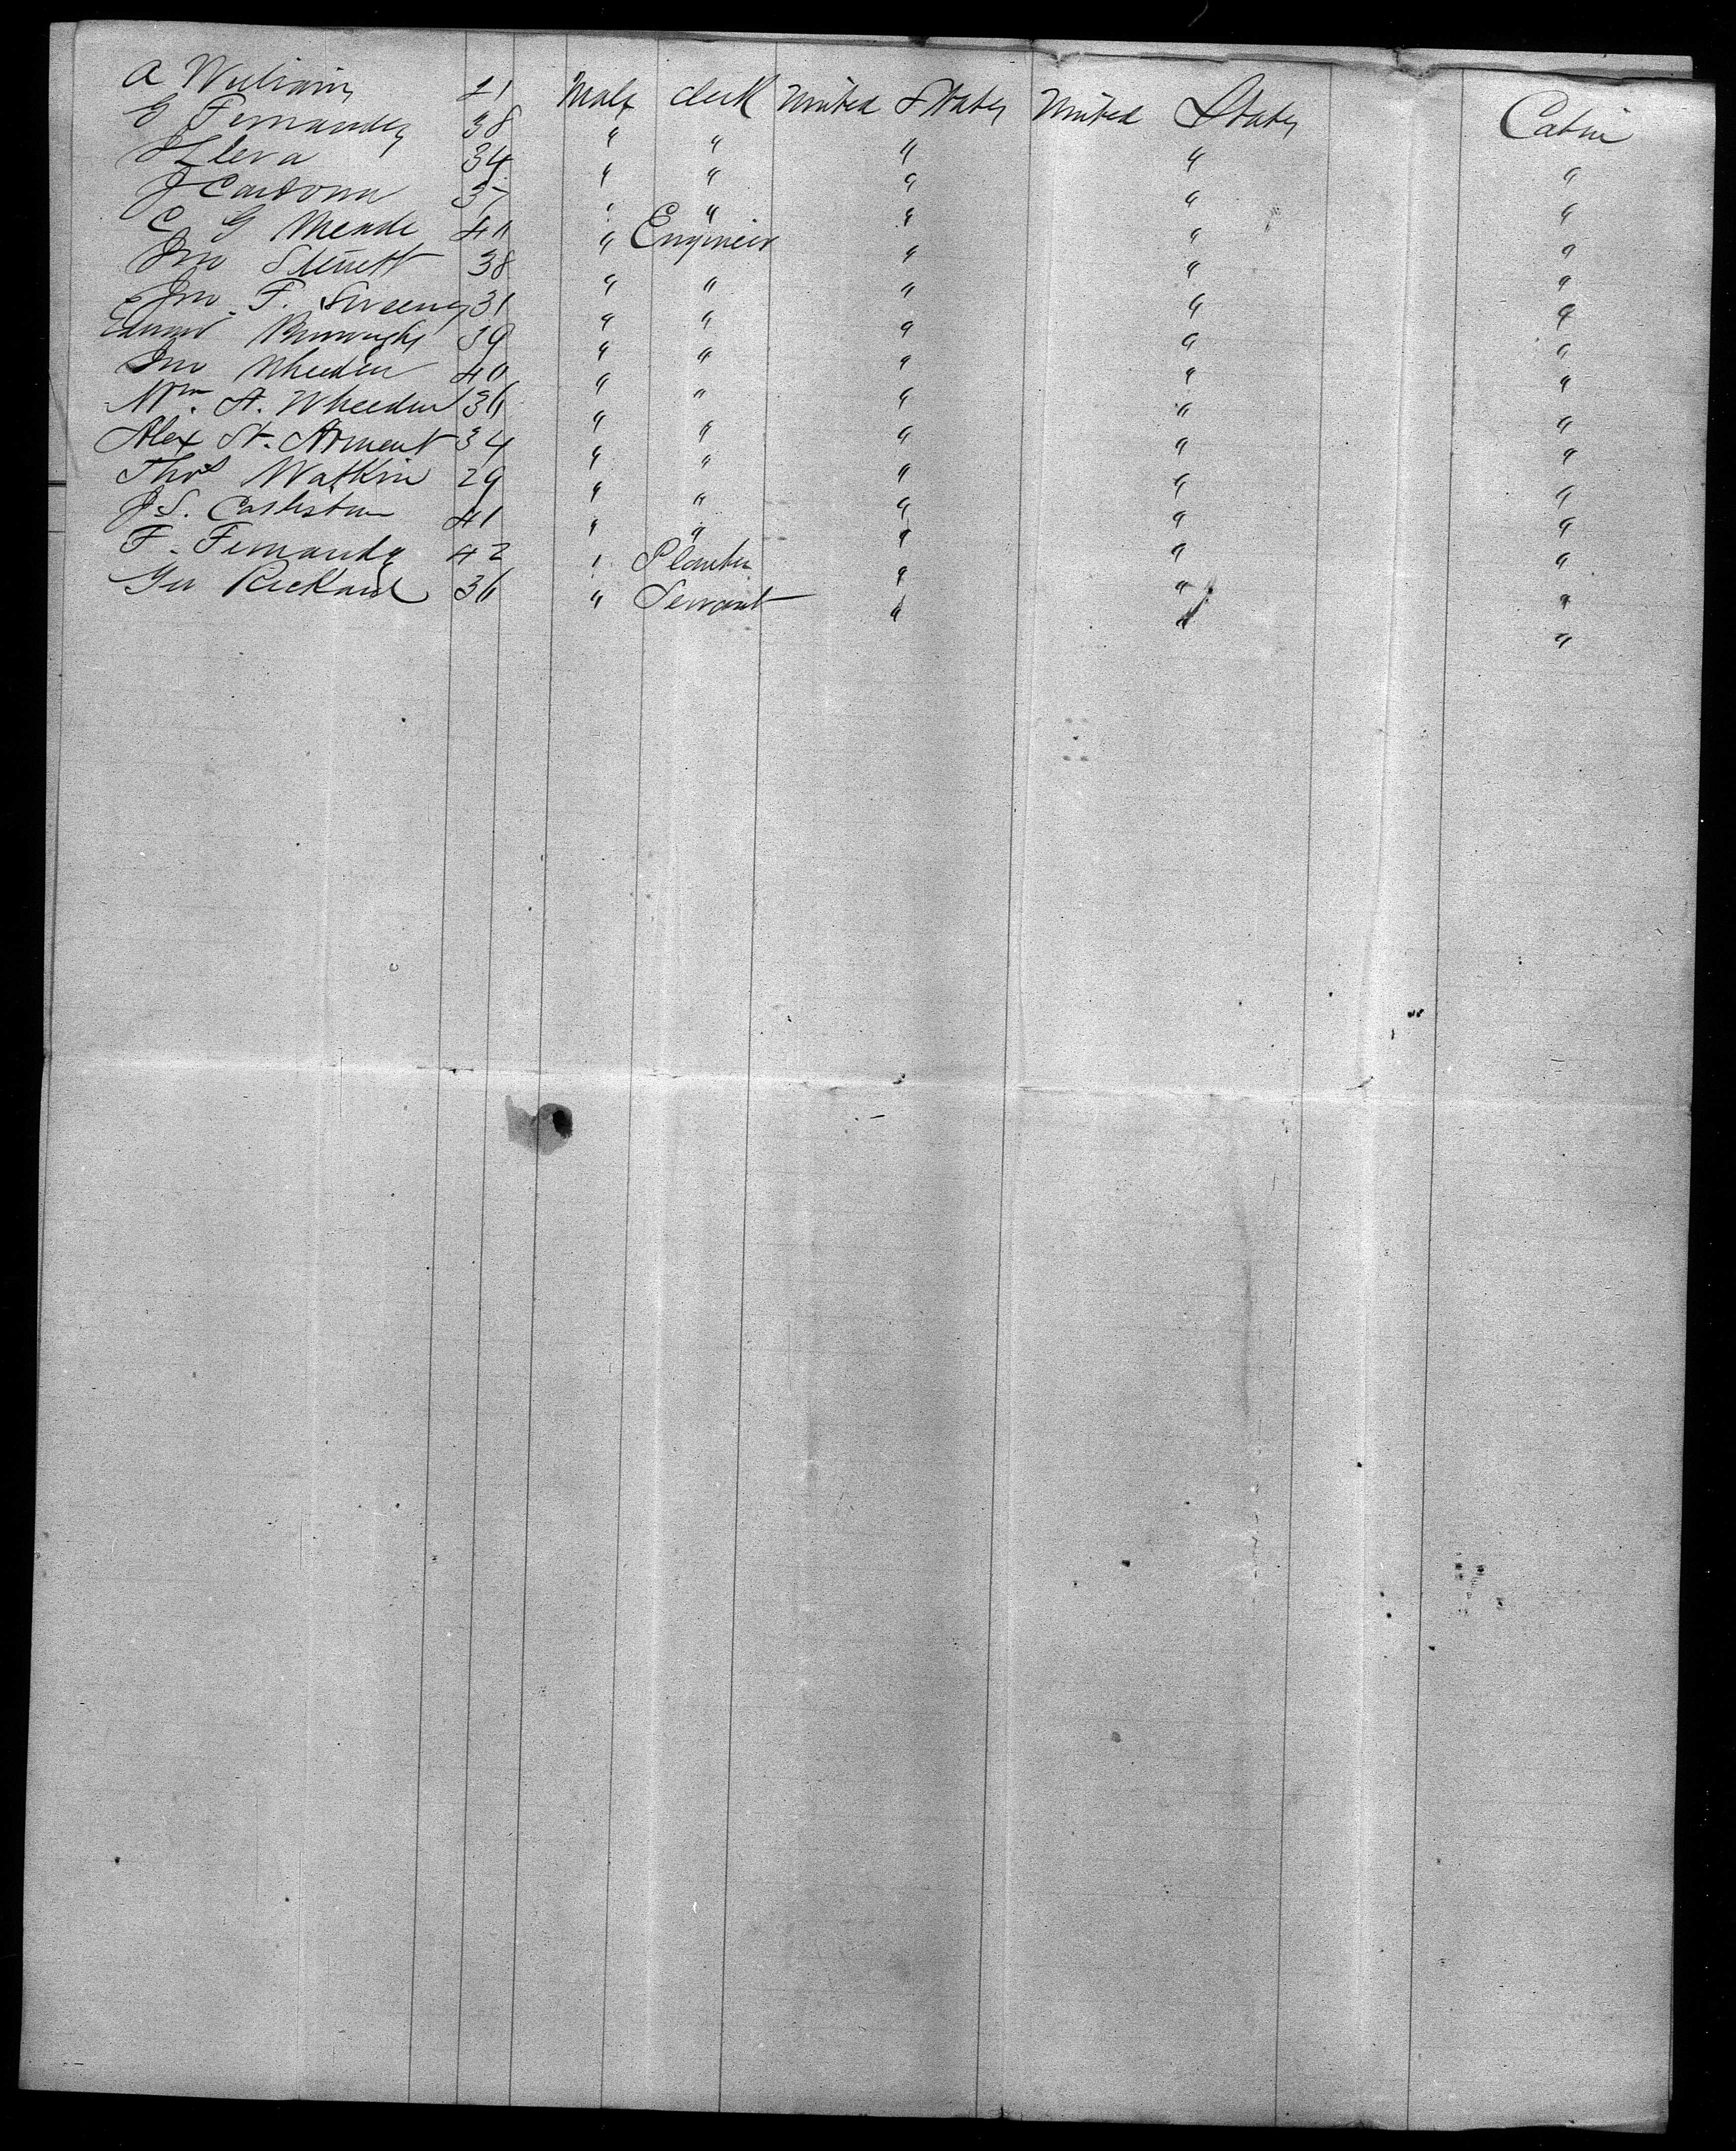 A Williams 21 Male Clerk United States United States Cabin
G Fernandez 38 " " " " "
Lleva 34 " " " " "
J Cardona 37 " " " " "
C G Meade 40 " Engineer " " "
Jno Sterrett 38 " " " " "
Jno. F. Sweeney 31 " " " " "
Edward Burroughs 39 " " " " "
Jno Wheeden 40 " " " " "
Wm. A. Wheeden 36 " " " " "
Alex St. Arment 34 " " " " "
Thos Watkin 29 " " " " "
J S. Carlestum 41 " " " " "
F. Fernandez 42 " Planter " " "
Geo Rickard 36 " Servant " " "